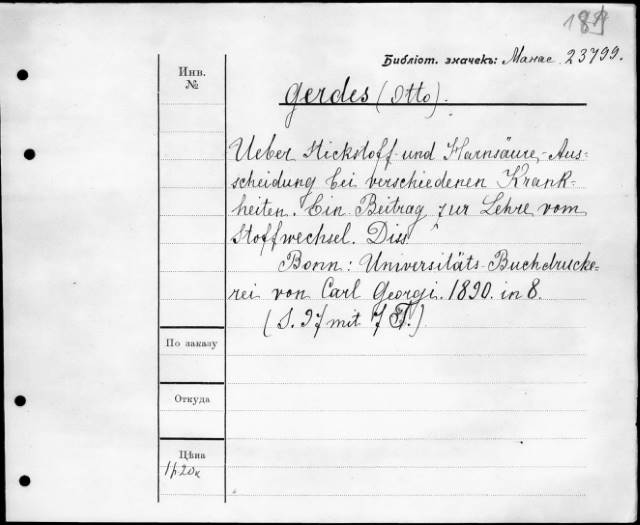 189
Библіот. значекъ: Манас 23799.
Инв.
№
Gerdes (Otto).
Ueber Stickstoff und Harnsäure-Aus-
scheidung bei verschiedenen Krank-
heiten. Ein Beitrag zur Lehre vom
Stoffwechsel. Diss.
Bonn: Universitäts-Buchdrucke-
rei von Carl Georgi. 1890. in 8.
(S. 37 mit 7 T.)
По заказу
Откуда
Цѣна
1р20к